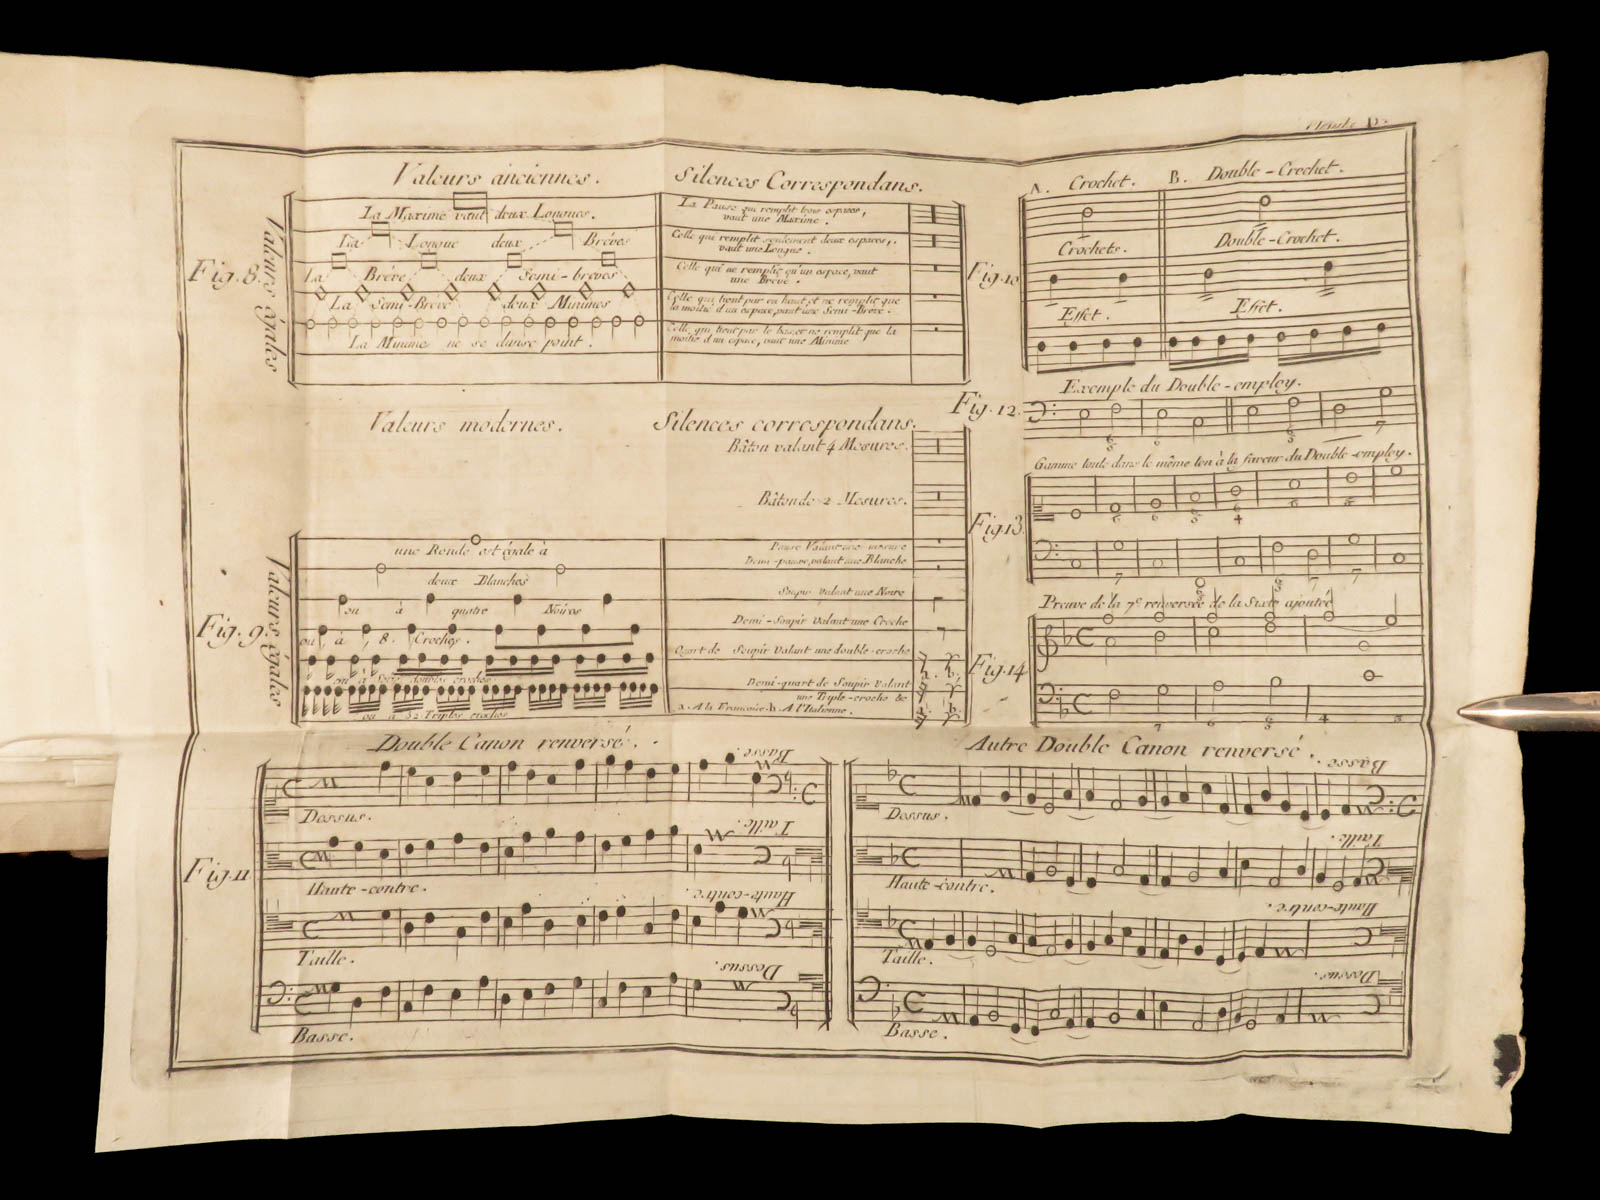 Planche D.
Valeurs anciennes.
Silences Correspondans.
Fig. 8.
Valeurs égales
La Maxime vaut deux Longues.
La Longue deux Bréves
La Bréve deux Semi-breves
La Semi-Breve deux Minimes
La Minime ne se divise point.
La Pause qui remplit trois espaces,
vaut une Maxime.
Celle qui remplit seulement deux espaces,
vaut une Longue.
Celle qui ne remplit qu'un espace, vaut
une Bréve.
Celle qui tient par en haut, et ne remplit que
la moitié d'un espace, vaut une Semi-Breve.
Celle qui tient par le bas, et ne remplit que la
moitié d'un espace, vaut une Minime
Valeurs modernes.
Silences correspondans.
Fig. 9.
Valeurs égales
une Ronde est égale à
deux Blanches
ou à quatre Noires
ou à 8. Croches.
ou à Seize doubles croches
ou à 32 Triples croches
Bâton valant 4 Mesures.
Bâton de 2 Mesures.
Pause Valant une mesure
Demi-pause, valant une Blanche
Soupir valant une Noire
Demi-Soupir Valant une Croche
Quart de Soupir Valant une double-croche
Demi-quart de Soupir Valant
une Triple-croche &c
a. A la Françoise. b. A l'Italienne.
a. b.
Fig. 10
A. Crochet. B. Double-Crochet.
Crochets. Double-Crochet.
Effet. Effet.
Exemple du Double-employ.
Fig. 12.
Gamme toute dans le même ton à la faveur du Double-employ.
Fig. 13
Preuve de la 7e renversée de la Sixte ajoutée
Fig. 14
Double Canon renversé.
Fig. 11
Dessus.
Basse.
Haute-contre.
Taille.
Taille.
Haute-contre.
Basse.
Dessus.
Autre Double Canon renversé.
Dessus.
Basse.
Haute-contre.
Taille.
Taille.
Haute-contre.
Basse.
Dessus.